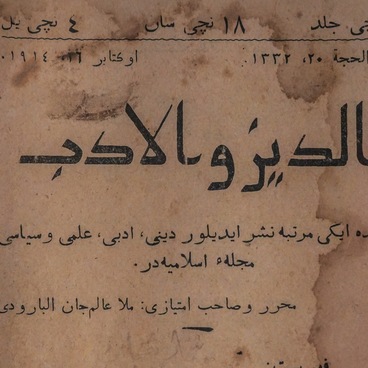 نچی جلد ۱۸ نچی سان ٤ نچی یل
الحجة ۲۰، ۱۳۳۲. اوکتابر ۱٦، ۱۹۱٤.
الدین والادب
ده ایکی مرتبه نشر ایدیلور دینی، ادبی، علمی و سیاسی
مجلهء اسلامیه‌در.
محرر وصاحب امتیازی: ملا عالم‌جان البارودی